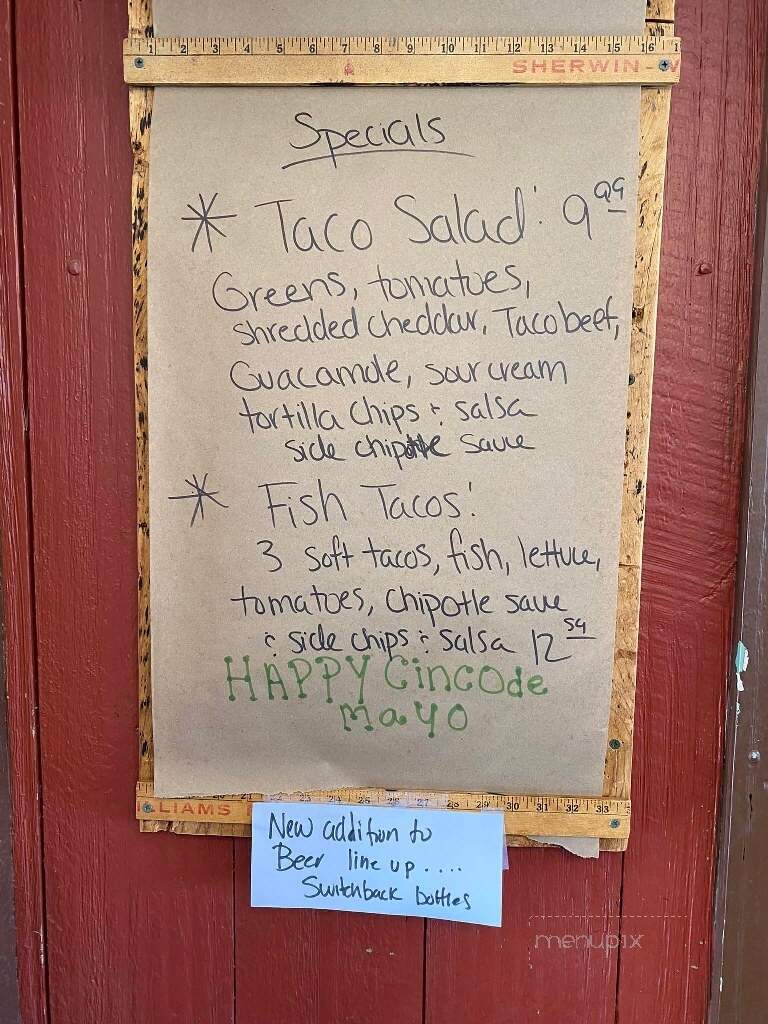 1 2 3 4 5 6 7 8 9 10 11 12 13 14 15 16 1
SHERWIN-W
Specials
* Taco Salad: 9.99
Greens, tomatoes,
shredded cheddar, Taco beef,
Guacamole, sour cream
tortilla chips & salsa
side chipotle sauce
* Fish Tacos:
3 soft tacos, fish, lettuce,
tomatoes, chipotle sauce
& side chips & salsa 12.59
HAPPY Cinco de
Mayo
LLIAMS 22 23 24 25 26 27 28 29 30 31 32 33
New addition to
Beer line up....
Switchback bottles
menupix